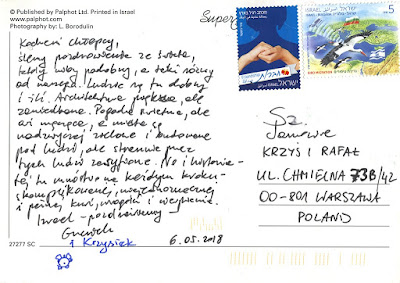 © Published by Palphot Ltd. Printed in Israel
www.palphot.com
Photography by: L. Borodulin
Kochani chłopcy,
ślemy pozdrowienia ze świata,
podobny, a taki różny
od naszego. Ludzie są tu dobrzy
i źli. Architektura piękna, ale
zaniedbana. Pogoda świetna, ale
aż męcząca, a miasta są
nadzwyczaj zielone i budowane
pod ludzi, ale strasznie przez
tych ludzi zasyfione. No i
tej tu mnóstwo na każdym kroku -
skomplikowanej,
i pełnej krwi, i
Izrael - pozdrawiamy
i Krzysiek
6.05.2018
27277 SC
ISRAEL
5
Sz.
Panowie
KRZYŚ I RAFAŁ
UL. CHMIELNA 73B/42
00-801 WARSZAWA
POLAND